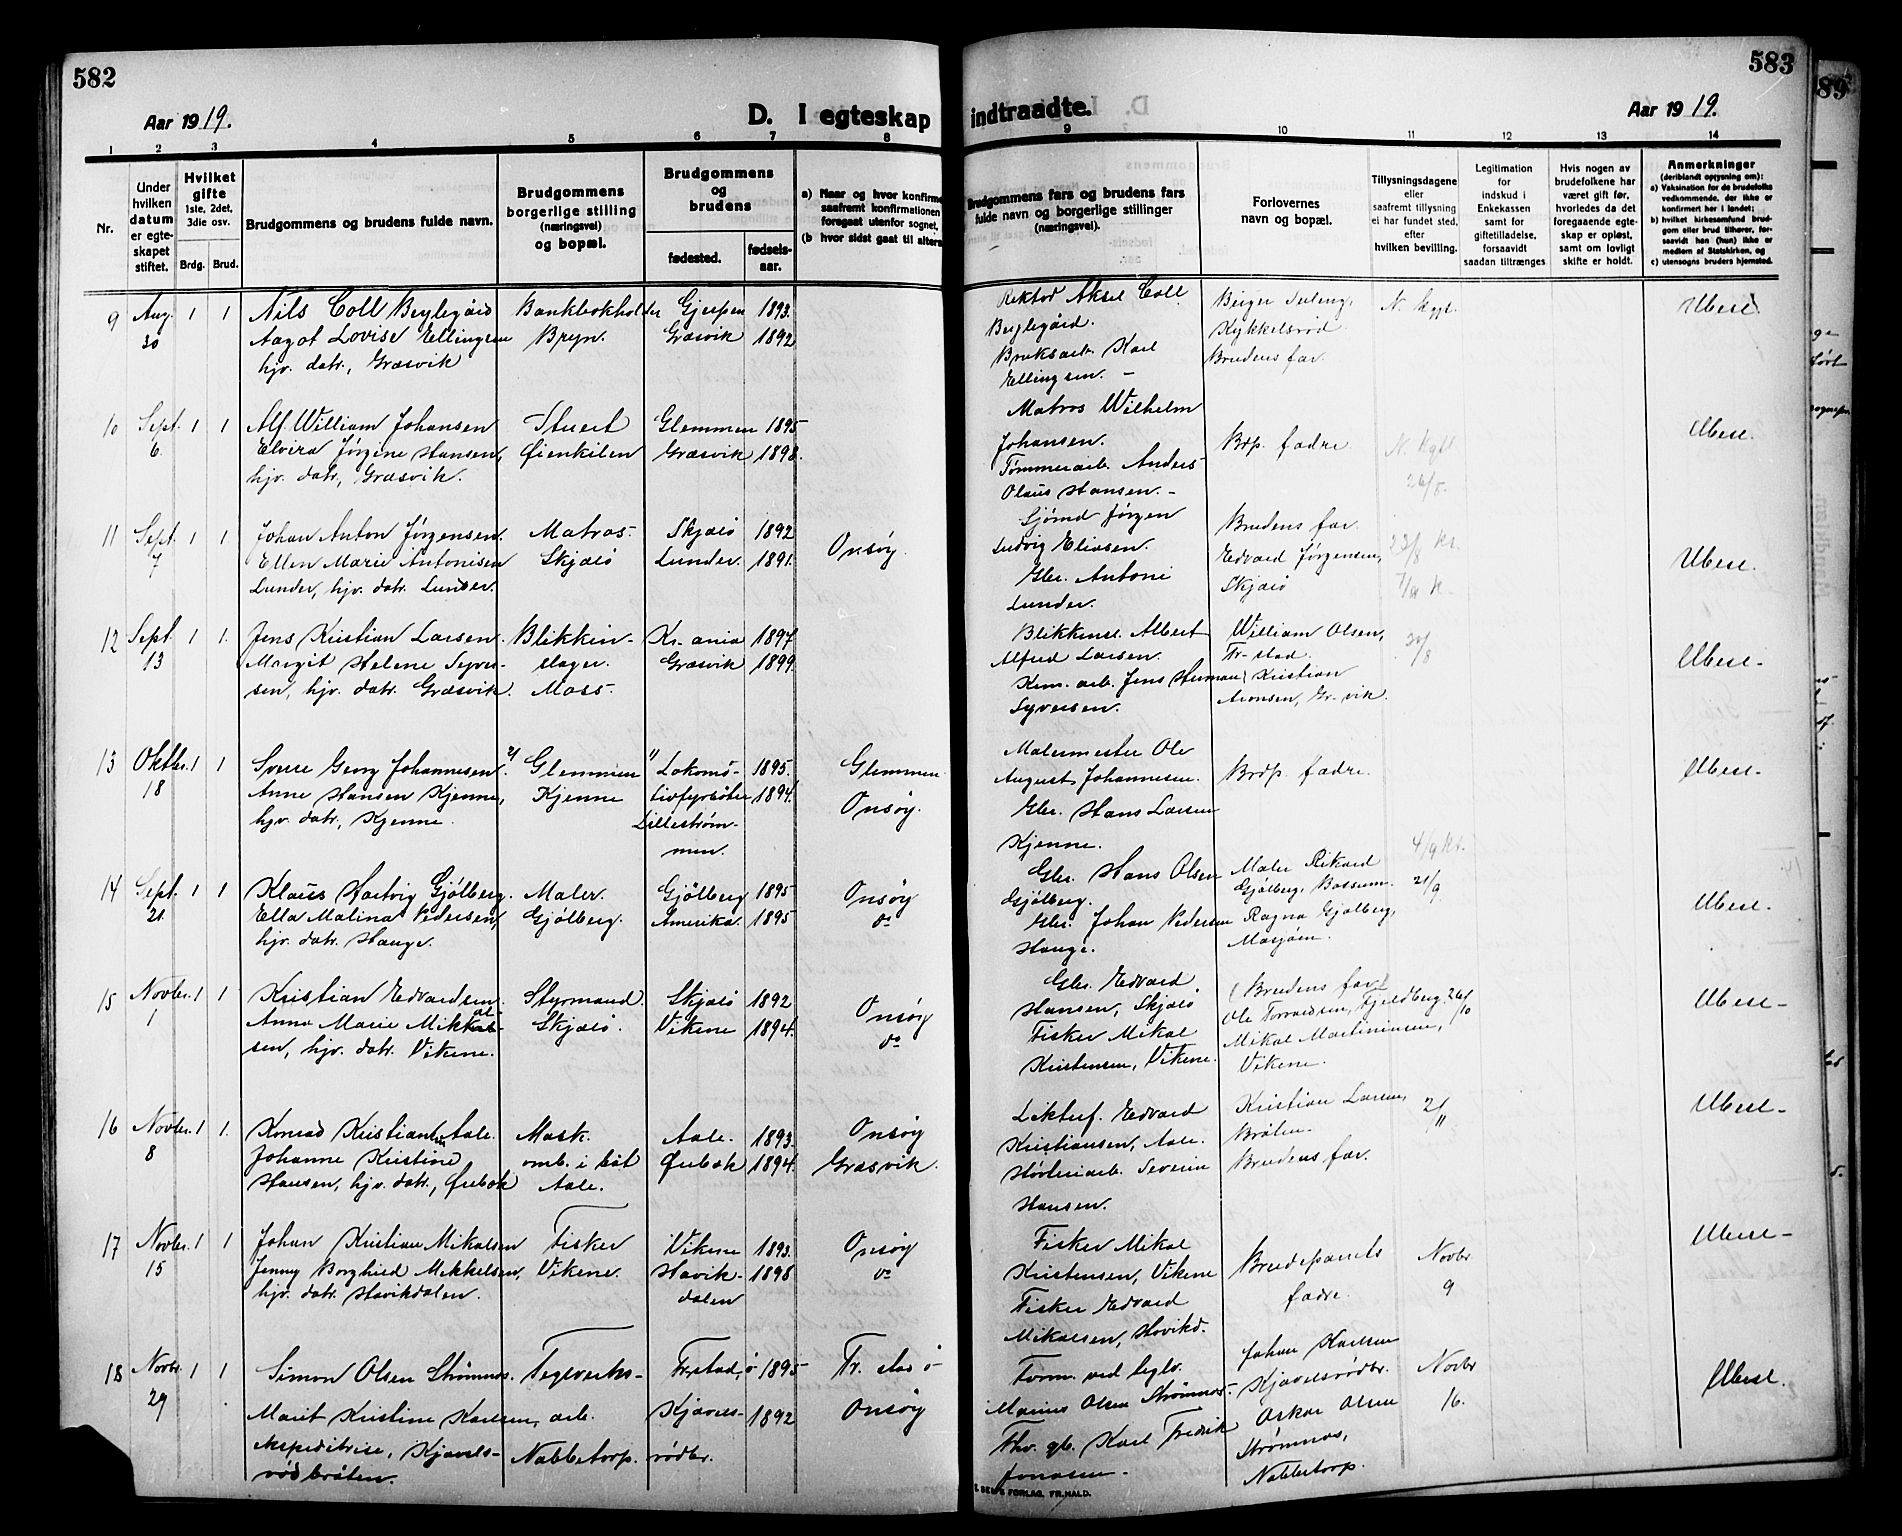 582
583
89
Aar 1919.
D. I egteskap indtraadte.
Aar 1919.
1 2 3 4 5 6 7 8 9 10 11 12 13 14
Nr.
Under hvilken datum er egteskapet stiftet.
Hvilket gifte 1ste, 2det, 3die osv.
Brdg. Brud.
Brudgommens og brudens fulde navn.
Brudgommens borgerlige stilling (næringsvei) og bopæl.
Brudgommens og brudens
fødested.
fødselsaar.
a) Naar og hvor konfirme
saafremt konfirmationen
foregaat utenfor sognet,
(b hvor sidst gaat til alters
Brudgommens fars og brudens fars fulde navn og borgerlige stillinger (næringsvei).
Forlovernes navn og bopæl.
Tillysningsdagene eller saafremt tillysning ei har fundet sted, efter hvilken bevilling.
Legitimation for indskud i Enkekassen samt for giftetilladelse, forsaavidt saadan tiltrænges
Hvis nogen av brudefolkene har været gift før, hvorledes da det foregaaende egteskap er opløst, samt om lovligt skifte er holdt.
Anmerkninger
(deriblandt opplysning om):
a) Vaksination for de brudefolks vedkommende, der ikke er konfirmert her i landet;
b) hvilket kirkesamfund brudgom eller brud tilhører, forsaavidt han (hun) ikke er medlem af Statskirken, og
c) utensogns bruders hjemsted.
9 Aug. 30 1 1
Nils Coll Berglegård
Aagot Lovise Ellingsen
hjv. datr., Græsvik
Bankbokholder
Bryn.
Gjerpen 1893.
Græsvik 1892
Rektor Aksel Coll
Berglegård.
Bruksarb. Karl
Ellingsen. -
Kykkelsrød
Brudens far.
Ubesl.
10 Sept. 6. 1 1
Alf William Johansen
Elvira Jørgine Hansen,
hjv. datr., Græsvik.
Stuert
Øienkilen
Glemmen 1895
Græsvik 1898.
Matros Wilhelm
Johansen.
Tømmerarb. Anders
Olaus Hansen. -
Brp. fædre.
26/8.
Ubesl.
11 Sept. 7 1 1
Johan Anton Jørgensen.
Ellen Marie Antonisen
Lunder, hjv. datr. Lunder.
Matros
Skjælø
Skjælø 1892
Lunder. 1891.
Onsøy.
Sjømd Jørgen
Ludvig Eliasen.
Gbr. Antoni
Lunder.
Brudens far.
Edvard Jørgensen,
Skjælø
Ubesl.
12 Sept. 13 1 1.
Jens Kristian Larsen.
Margit Helene Syver-
sen, hjv. datr. Græsvik.
Blikken-
slager.
Moss.
Kr.ania 1897
Græsvik 1899.
Blikkensl. Albert
Alfred Larsen.
Kem. arb. Jens Herman
Syversen.
William Olsen,
Fr-stad.
Kristian
Aronsen, Gr-vik.
31/8
Ubesl.
13 Oktbr. 18 1 1
Sverre Georg Johannesen.
Anne Hansen Kjenne,
hjv. datr., Kjenne.
2) Glemmen
Kjenne
1) Lokomo-
tivfyrbøter
Lillestrøm-
men.
1895.
1894.
Glemmen
Onsøy.
Malermester Ole
August Johannesen.
Gbr. Hans Larsen
Kjenne.
Brdp. fædre.
Ubesl.
14 Sept. 21. 1 1
Klaus Hartvig Gjølberg.
Ella Malina Pedersen,
hjv. datr. Hauge.
Maler.
Gjølberg.
Gjølberg 1895
Amerika. 1895
Onsøy
do
Gbr. Hans Olsen
Gjølberg.
Gbr. Johan Pedersen
Hauge.
Maler Rikard
Gjølberg, Bossum.
Ragna Gjølberg,
Mosjøen.
21/9
Ubesl.
15 Novbr. 1 1 1
Kristian Edvardsen.
Anna Marie Mikkal-
sen, hjv. datr. Vikene.
Styrmand.
Skjælø.
Skjælø 1892
Vikene 1894.
Onsøy
do
Gbr. Edvard
Hansen, Skjælø
Fisker Mikal
Kristensen, Vikene.
(Brudens far)
Ole Torvardsen, Fjeldberg.
Mikal Martiniusen,
Vikene.
26/10
Ubesl.
16 Novbr. 8 1 1.
Konrad Kristiansen Aale.
Johanne Kristine
Hansen, hjv. datr., Ørebæk
Mask.
omb. i båt
Aale.
Aale. 1893.
Ørebæk 1894.
Onsøy
Græsvik.
Likterf. Edvard
Kristiansen, Aale.
Høvleriarb. Severin
Hansen.
Kristian Larsen,
Bråten.
Brudens far.
2/11
Ubesl.
17 Novbr. 15 1 1
Johan Kristian Mikalsen
Jenny Borghild Mikkelsen,
hjv. datr. Havikdalen.
Fisker
Vikene.
Vikene 1893.
Havik-
dalen 1898
Onsøy
do
Fisker Mikal
Kristensen, Vikene
Fisker Edvard
Mikalsen, Hovikd.
Brudeparets
fædre.
Novbr
9
Ubesl.
18 Novbr. 29 1 1
Simon Olsen Strømnes.
Marit Kristine Karlsen,
ekspeditrise, Kjævels-
rødbråten.
Teglverks-
arb.
Nabbetorp.
Fr.stad, ø 1895
Kjævels-
rødbr. 1892
Fr. stad ø
Onsøy
Form. ved teglv.
Marius Olsen Strømnes.
Fhv. gb. Karl Fredrik
Jonasen.
Johan Karlsen
Kjævelsrødbr.
Oskar Olsen
Strømnes,
Nabbetorp.
Novbr
16.
Ubesl.
FORLAG, FR.HALD.